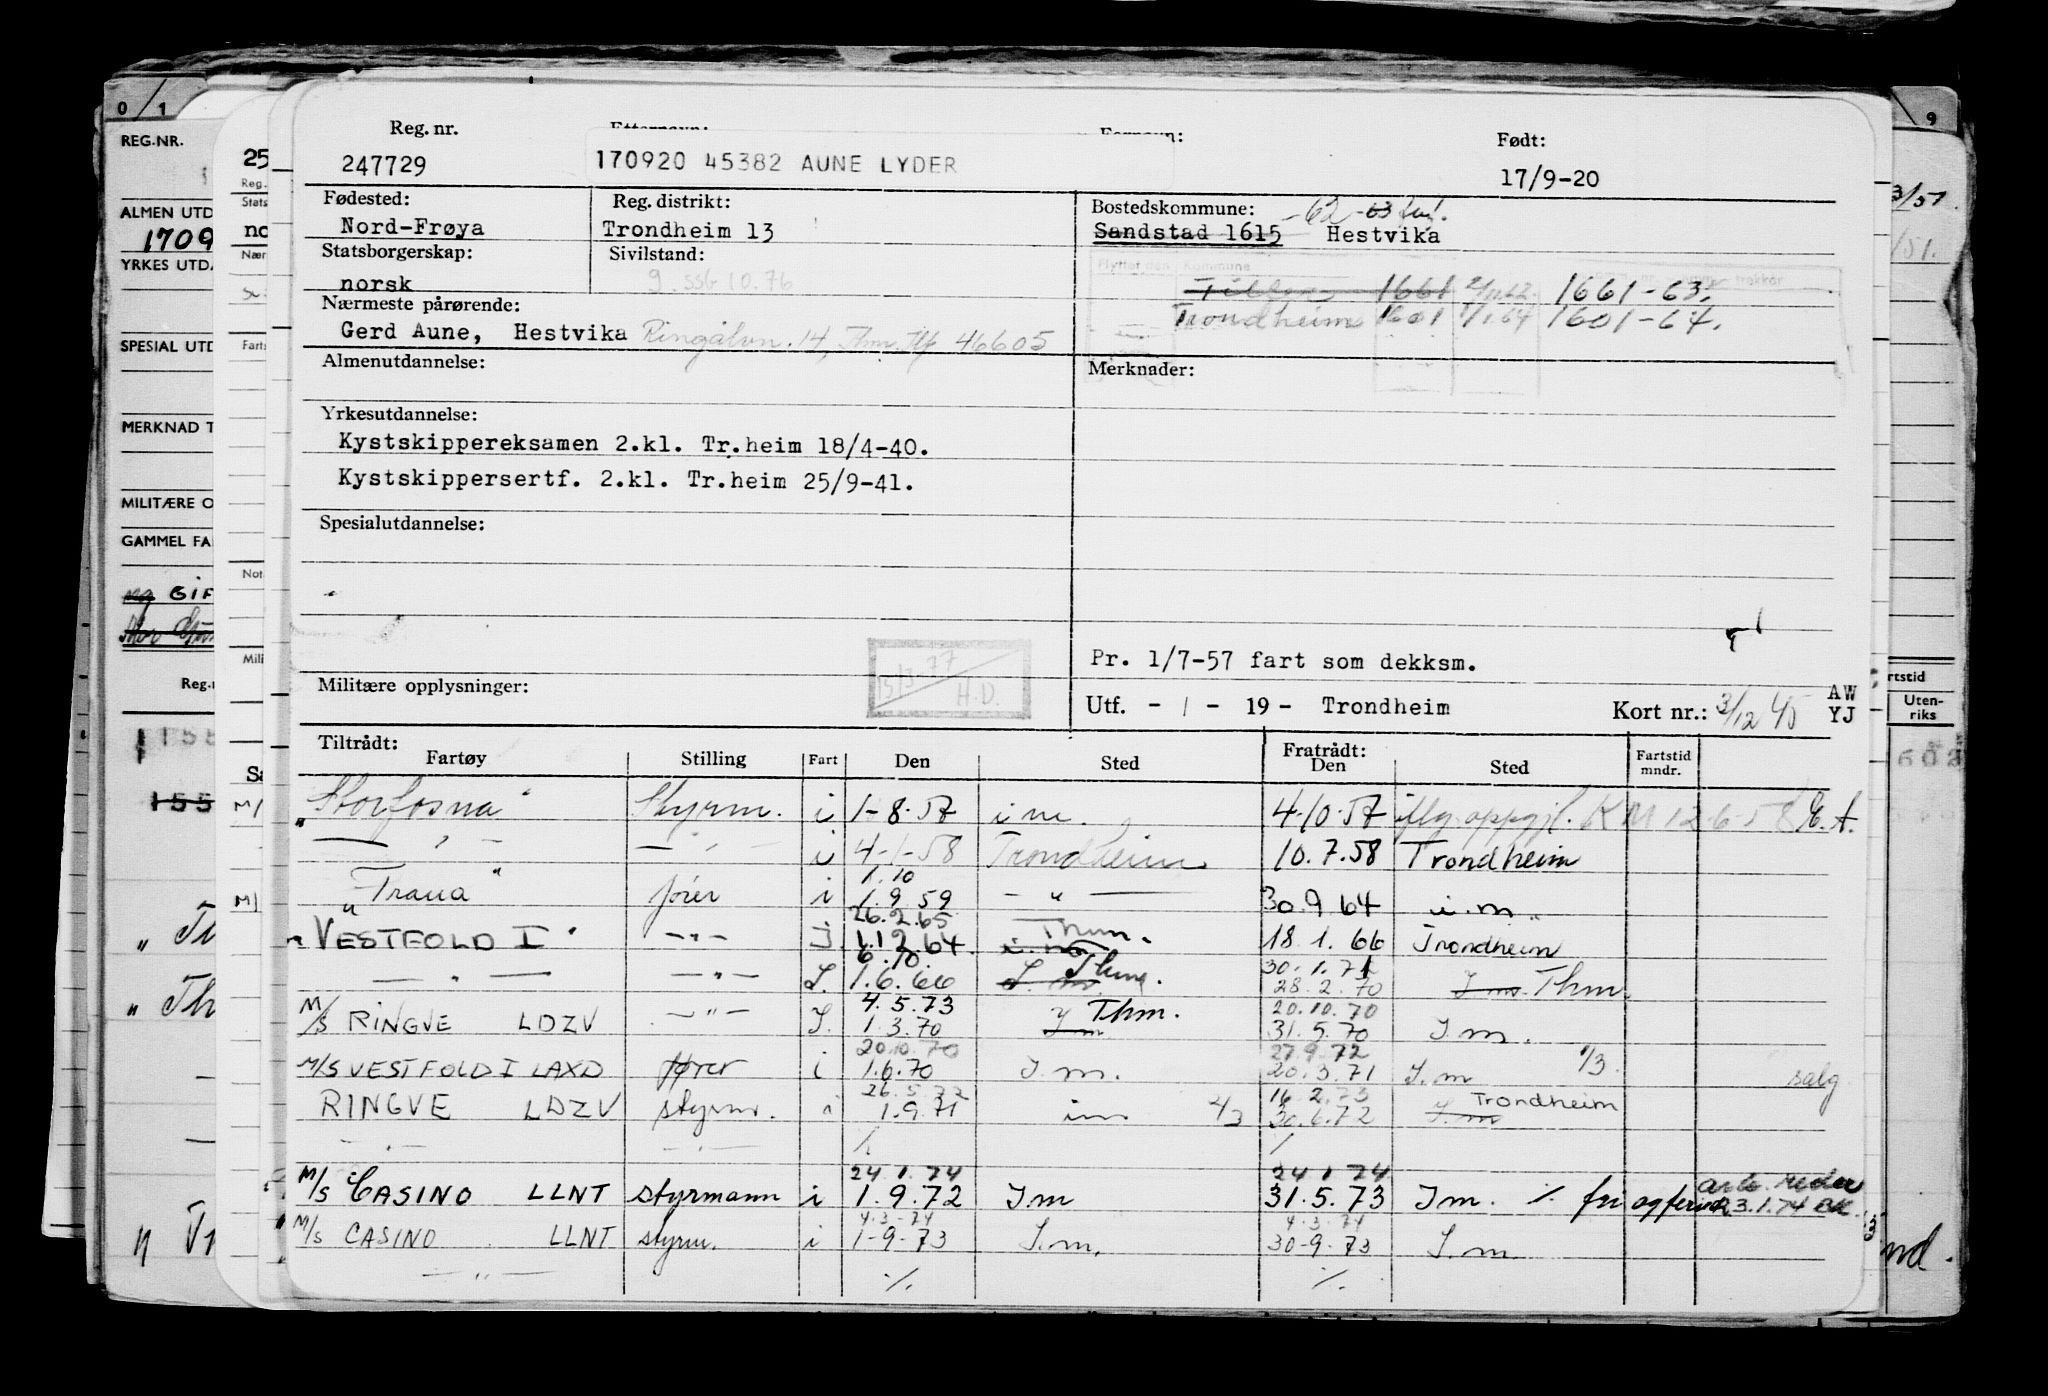 Reg. nr.
Født:
247729
170920 45382 AUNE LYDER
17/9-20
Fødested:
Reg. distrikt:
Bostedskommune: -62 -63
Nord-Frøya
Trondheim 13
Sandstad 1615 Hestvika
Statsborgerskap:
Sivilstand:
norsk
9. ssb 10.76
1661 1661-63.
Nærmeste pårørende:
Trondheim 1601 1/1.64 1601-64.
Gerd Aune, Hestvika Ringålvn. 14, Thm. Tlf 46605
Almenutdannelse:
Merknader:
Yrkesutdannelse:
Kystskippereksamen 2.kl. Tr.heim 18/4-40.
Kystskippersertf. 2.kl. Tr.heim 25/9-41.
Spesialutdannelse:
15/3.77
H.D.
Pr. 1/7-57 fart som dekksm.
Militære opplysninger:
Utf. - 1 - 19 - Trondheim
Kort nr.: 3/12 45
AW
YJ
Tiltrådt:
Fartøy
Stilling
Fart
Den
Sted
Fratrådt:
Den
Sted
Fartstid
mndr.
"Storfosna" Styrm. i 1-8.57 i m. 4.10.57 iflg. oppgj. KM 12-6-58 E.A.
— " — — " — i 4-1-58 Trondheim 10.7.58 Trondheim
1.10
"Traua" fører i 1.9 59 — " — 30.9.64 i.m.
26.2.65 Thm.
"VESTFOLD I" — " — I 1.12.64. i m 18.1.66 Trondheim
6.10. Thm. 30.1.71
— " — — " — I. 1.6.66 I. m 28.2.70 I.m. Thm.
4.5.73 Thm. 20.10.70
M/S RINGVE LDZV — " — I. 1.3.70 I m 31.5.70 I.m.
20.10.70 27.9.72
M/S VESTFOLD I LAXD fører i 1.6.70 I.m. 20.3.71 I.m 1/3. salg
26.5.72 16 2.73 Trondheim
RINGVE LDZV styrm. i 1.9.71 im 2/3 30.6.72 I.m
— " — — " — % %
24.1.74 24 1 74
M/S CASINO LLNT styrmann i 1.9.72 I m 31.5.73 I m. % fri og ferie 23.1.74
4.3.-74 4.3.74
M/S CASINO LLNT styrm. i 1-9-73 I.m. 30-9.73 I.m.
— " — % %
0/1
REG.NR.
ALMEN UTD
1709
YRKES UTDA
SPECIAL UTD
MERKNAD T
MILITÆRE O
GAMMEL FA
GIF
Reg.
155
155
25
Reg.
Stats
no
Nær
Farts
Not
Mili
Sa
M/
M/
9
3/51
/51.
rtstid
Uten-
riks
602
nd.